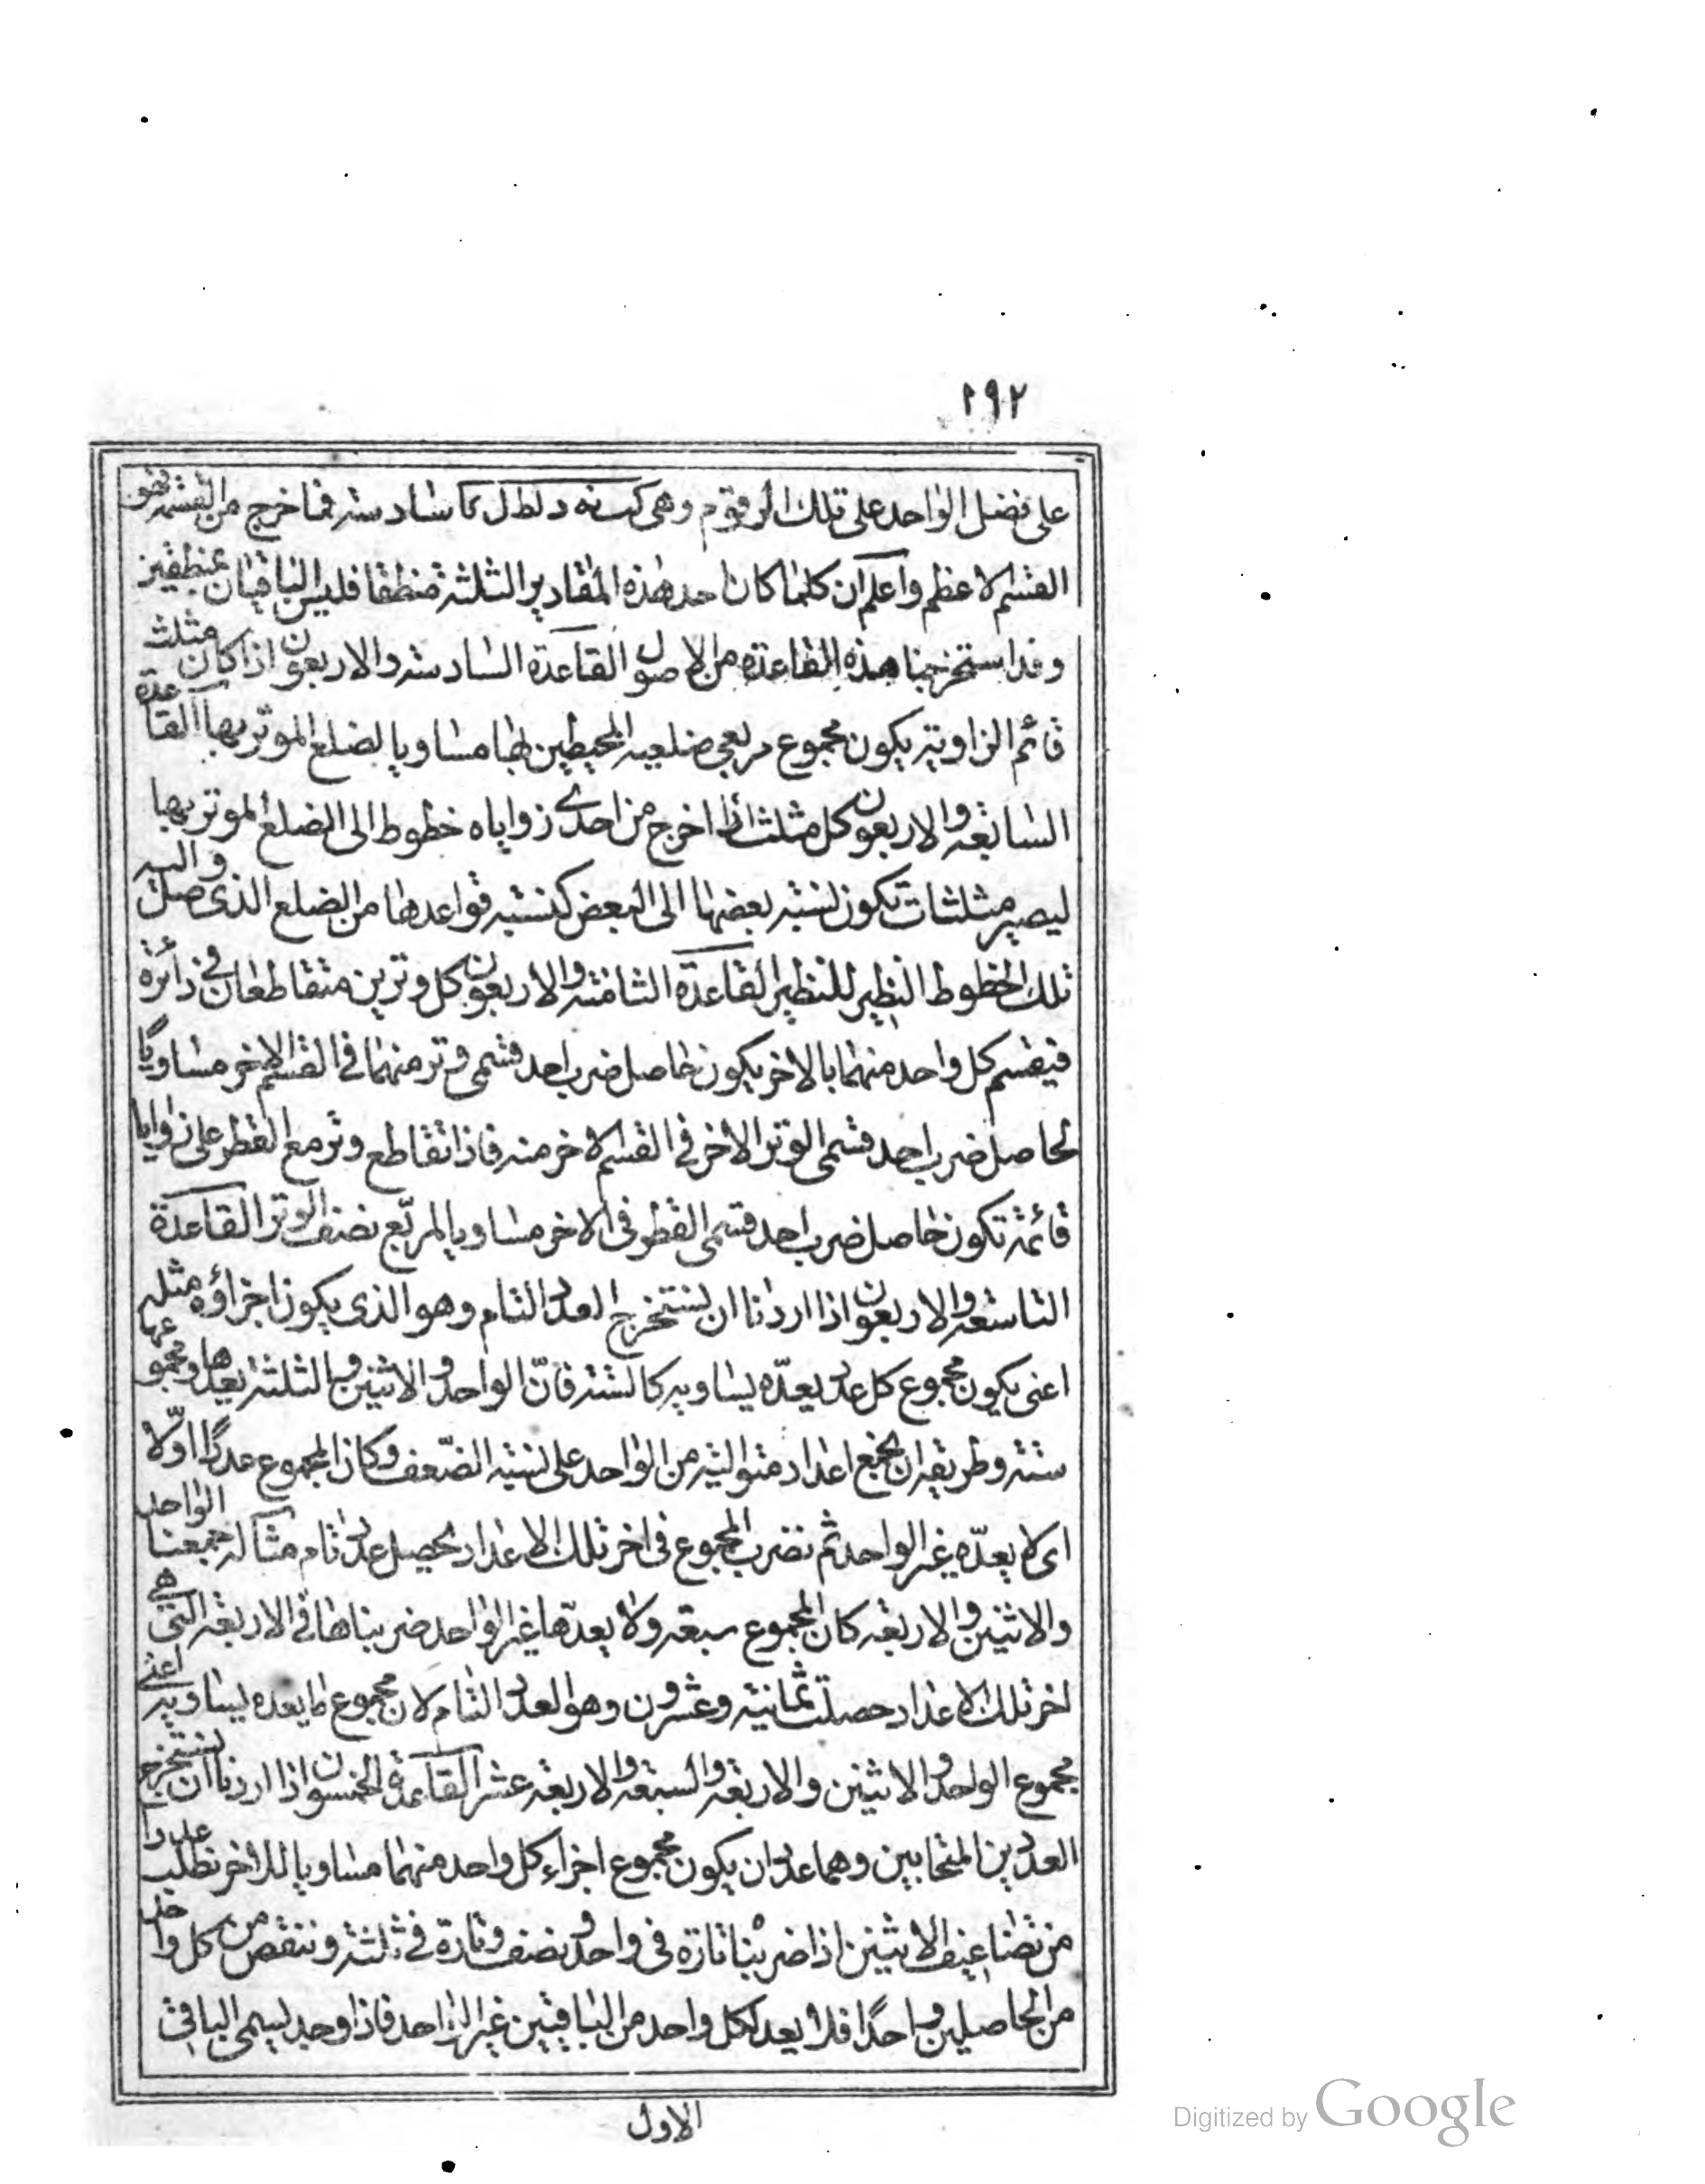 ١٩٢
على فضل الواحد على تلك الرقوم وهى كب نه د لط ل كا سادسة فما خرج من القسمة فهو
القسم الاعظم واعلم ان كلما كان احد هذه المقادير الثلثة منطقا فليس الباقيان بمنطقين
وقد استخرجنا هذه القاعدة من الاصول القاعدة السادسة والاربعون اذا كان مثلث
قائم الزاوية يكون مجموع مربعى ضلعيه المحيطين بها مساويا لضلع الموتر بها القاعدة
السابعة والاربعون كل مثلث اذا اخرج من احدى زواياه خطوط الى الضلع الموتر بها
ليصير مثلثات تكون نسبة بعضها الى البعض كنسبة قواعدها من الضلع الذى وصل اليه
تلك الخطوط النظير للنظير القاعدة الثامنة والاربعون كل وترين متقاطعان فى دائرة
فيقسم كل واحد منهما بالاخر يكون حاصل ضرب احد قسمى وتر منهما فى القسم الاخر مساويا
لحاصل ضرب احد قسمى الوتر الاخر فى القسم الاخر منه فاذا تقاطع وتر مع القطر على زوايا
قائمة تكون حاصل ضرب احد قسمى القطر فى الاخر مساويا لمربّع نصف الوتر القاعدة
التاسعة والاربعون اذا اردنا ان نستخرج العدد التام وهو الذى يكون اجزاؤه مثله
اعنى يكون مجموع كل عدد يعدّه يساويه كالستة فانّ الواحد والاثنين والثلثة يعدها ومجموعها
ستة وطريقه ان نجمع اعداد متوالية من الواحد على نسبة الضّعف وكان المجموع عددًا اوّلا
اى لا يعدّه غير الواحد ثم نضرب المجموع فى اخر تلك الاعداد يحصل عدد تام مثاله جمعنا الواحد
والاثنين والاربعة كان المجموع سبعة ولا يعدّها غير الواحد ضربناها فى الاربعة التى هى
اخر تلك الاعداد حصلت ثمانية وعشرون وهو العدد التام لان مجموع ما يعده يساويه اعنى
مجموع الواحد والاثنين والاربعة والسبعة والاربعة عشر القاعدة الخمسون اذا اردنا ان نستخرج
العددين المتحابين وهما عددان يكون مجموع اجزاء كل واحد منهما مساويا للاخر نطلب عددا
من تضاعيف الاثنين اذا ضربناه تارة فى واحد ونصف وتارة فى ثلثة وننقص من كل واحد
من الحاصلين واحدًا فلا يعد لكل واحد من الباقيين غير الواحد فاذا وجد يسمى الباقى
الاول
Digitized by Google